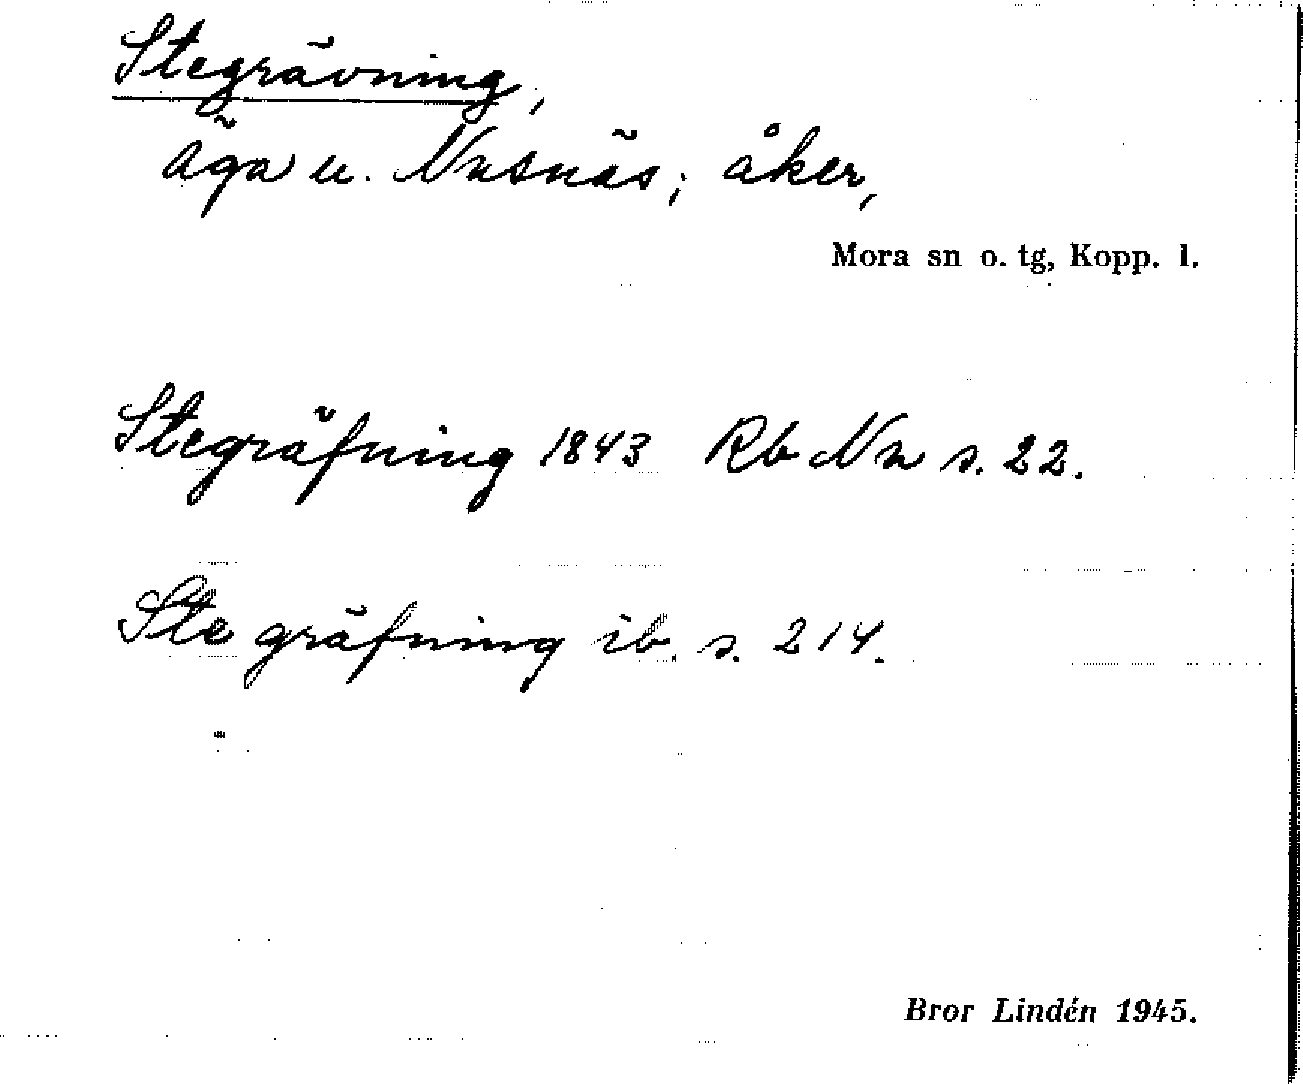 Stegrävning,
äga u. Nusnäs; åker,
Mora sn o. tg, Kopp. l.
Stegräfning 1843 Rb Nn s. 22.
Ste gräfning ib. s. 214.
Bror Lindén 1945.